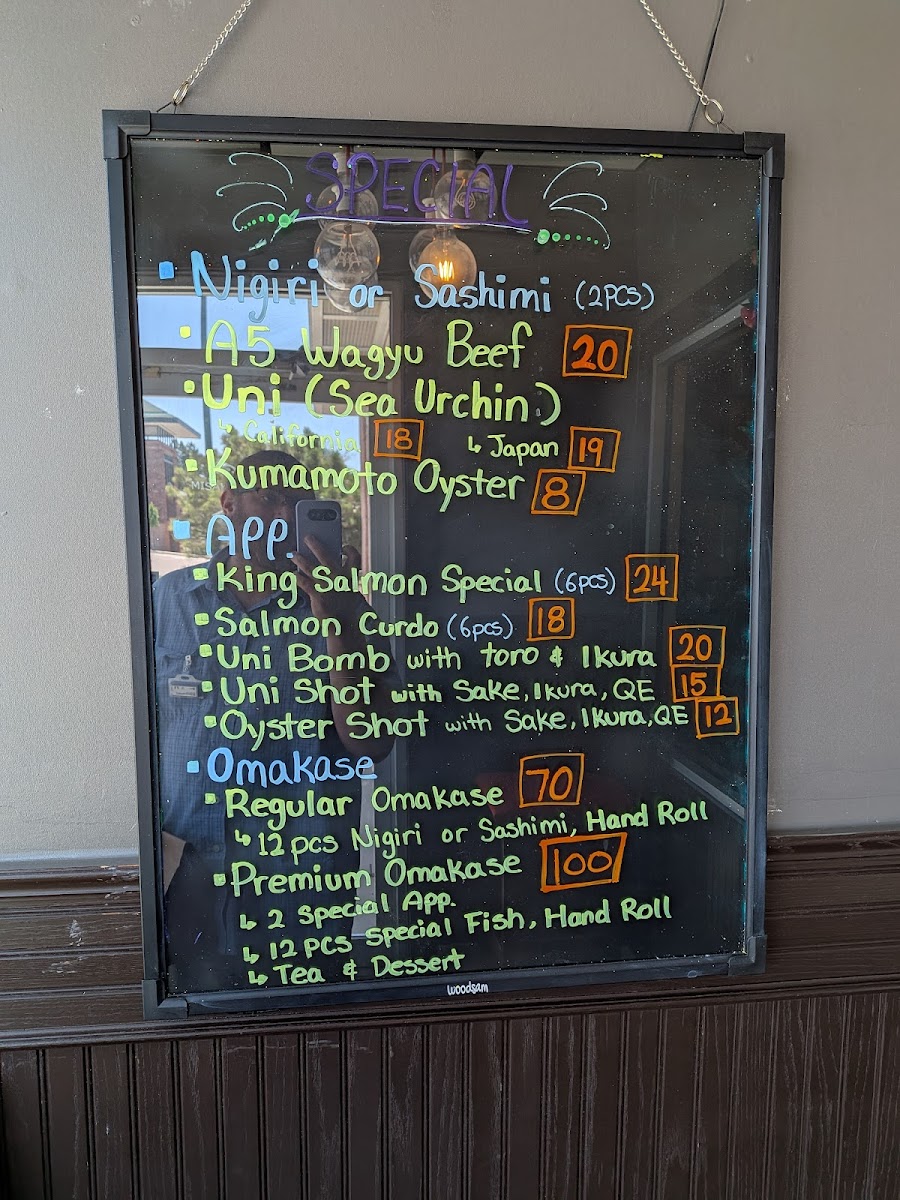 SPECIAL
Nigiri or Sashimi (2PCS)
A5 Wagyu Beef 20
Uni (Sea Urchin)
↳ California 18 ↳ Japan 19
Kumamoto Oyster 8
APP.
King Salmon Special (6pcs) 24
Salmon Curdo (6pcs) 18
Uni Bomb with toro & Ikura 20
Uni Shot with Sake, Ikura, QE 15
Oyster Shot with Sake, Ikura, QE 12
Omakase
Regular Omakase 70
↳ 12 pcs Nigiri or Sashimi, Hand Roll
Premium Omakase 100
↳ 2 Special App.
↳ 12 pcs Special Fish, Hand Roll
↳ Tea & Dessert
woodsam